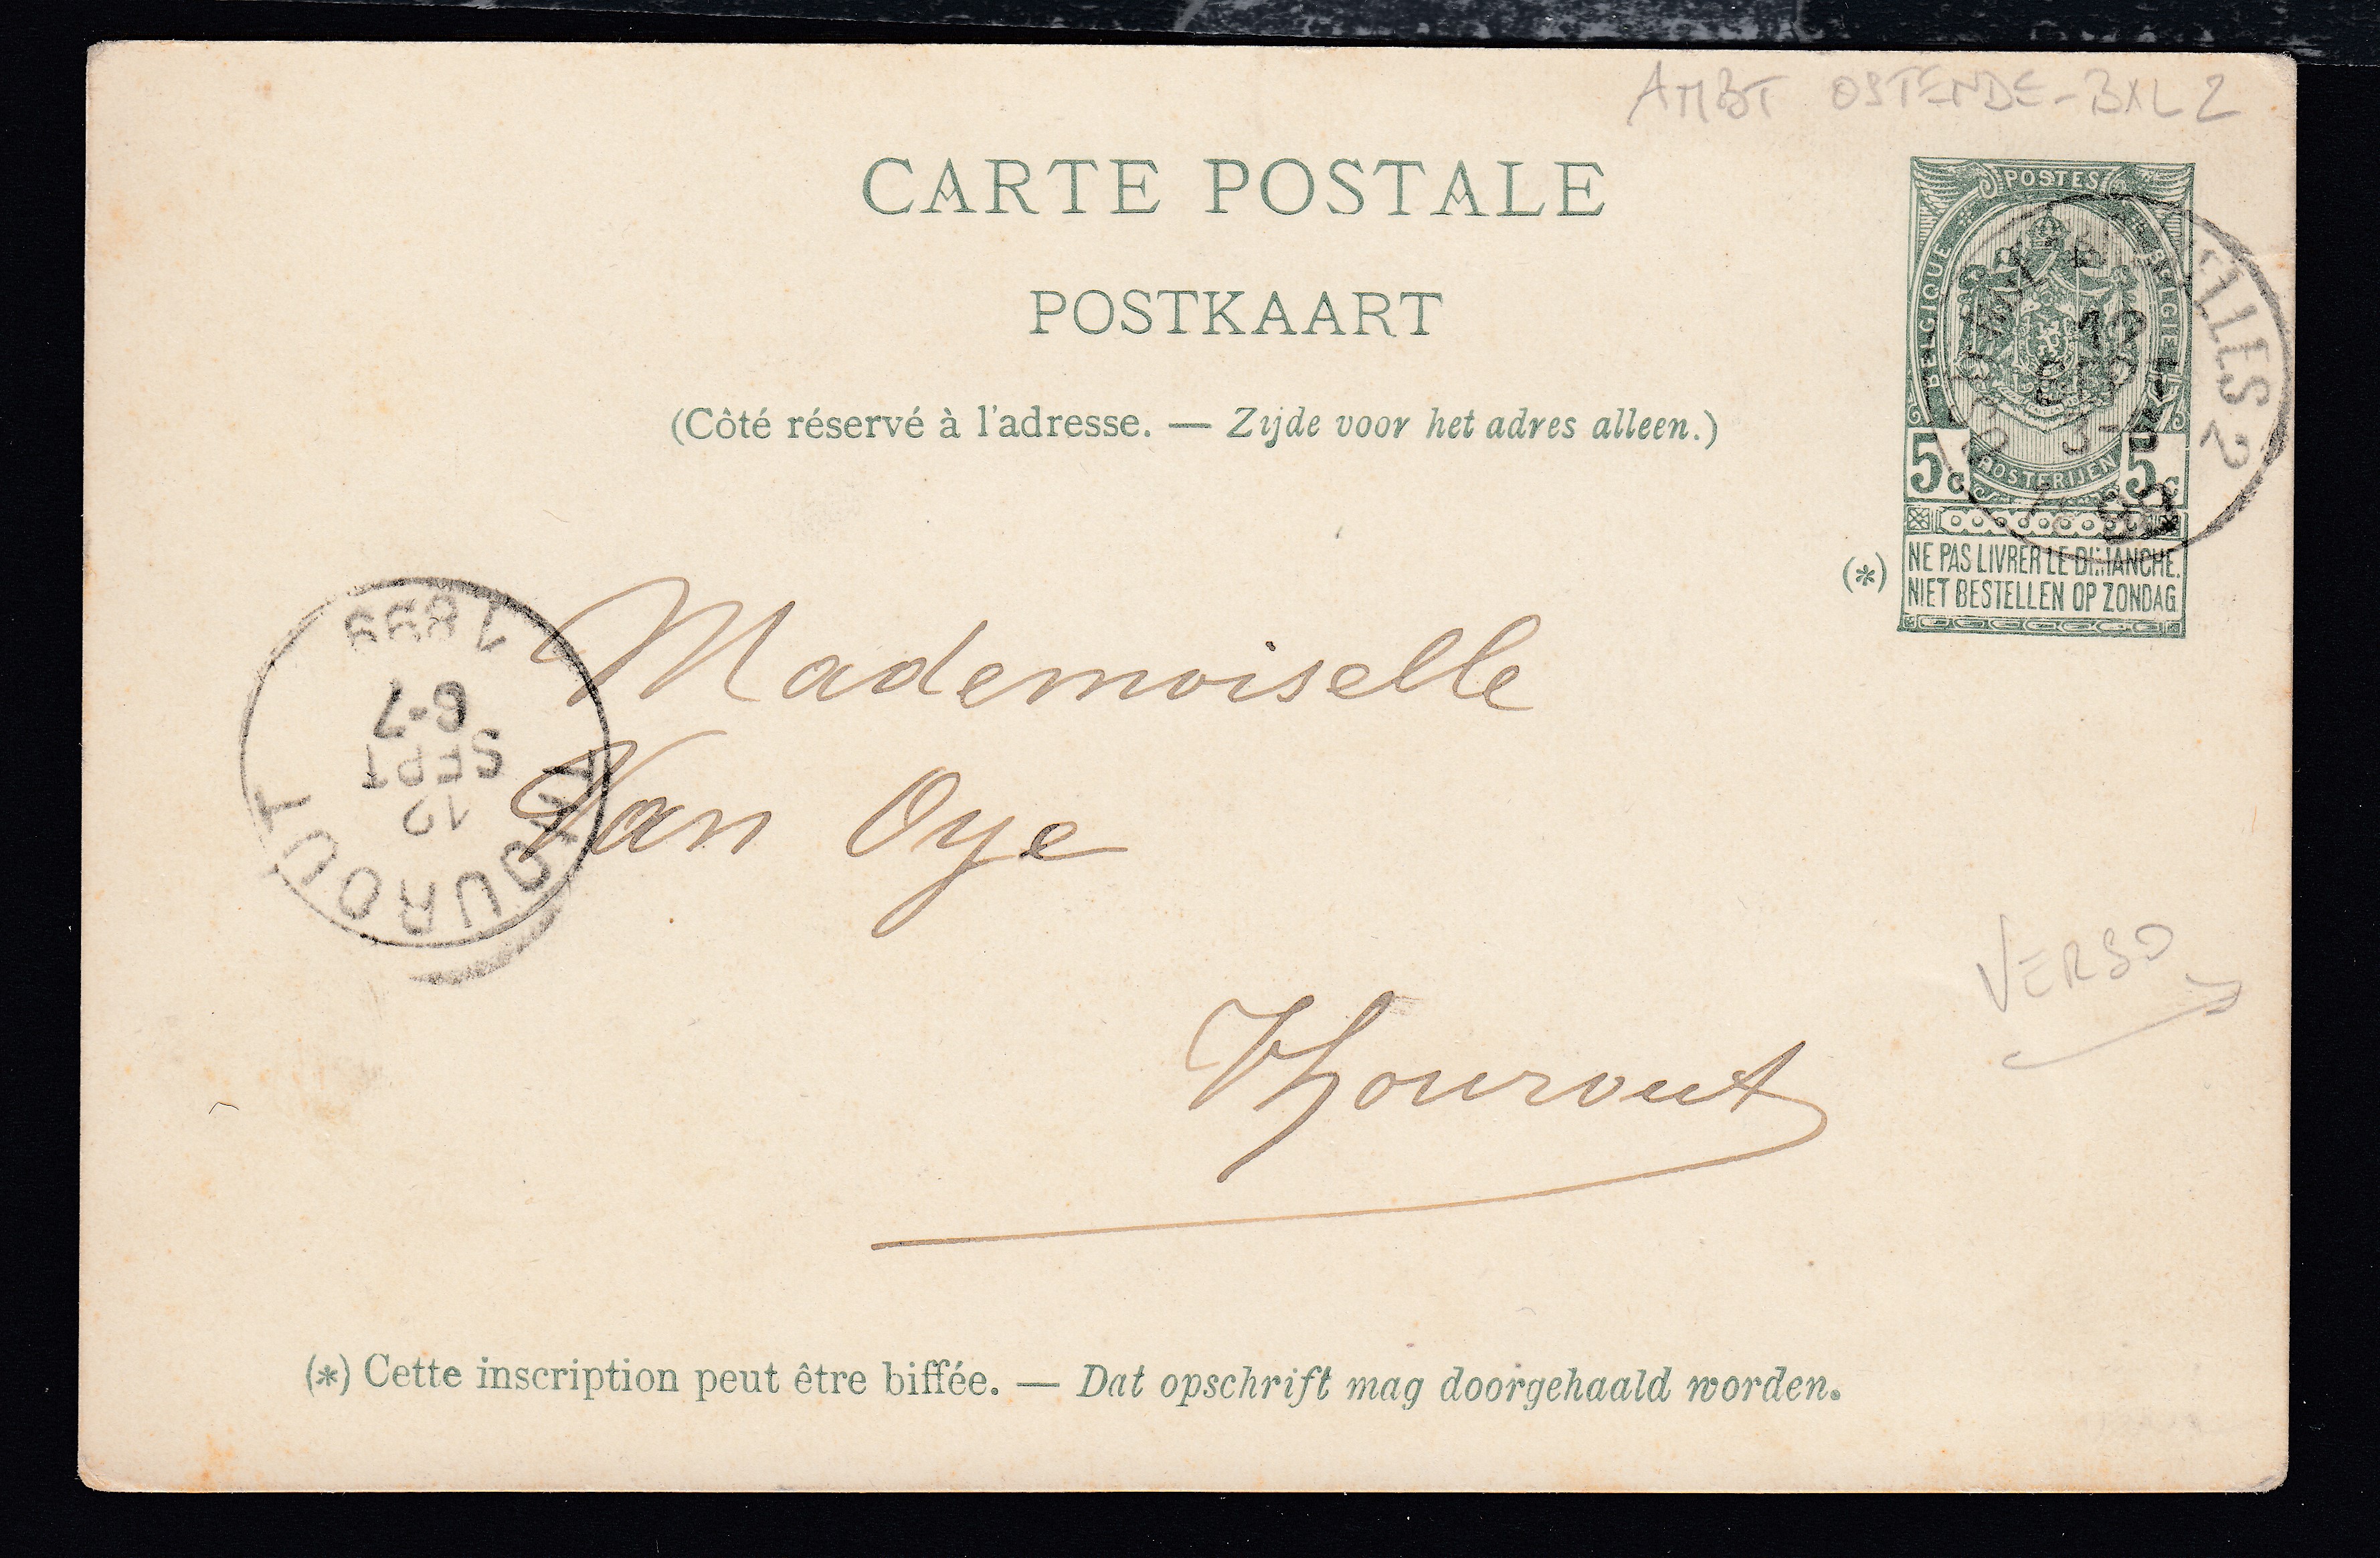 AMBT OSTENDE-BXL 2
CARTE POSTALE
POSTKAART
(Côté réservé à l'adresse. — Zijde voor het adres alleen.)
POSTES
BELGIQUE
BELGIË
POSTERIJEN
5c 5c
12
SEPT
99
ELLES 2
(*)
NE PAS LIVRER LE DIMANCHE.
NIET BESTELLEN OP ZONDAG
Mademoiselle
Van Oye
Thourout
THOUROUT
12
SEPT
6-7
1899
VERSO
(*) Cette inscription peut être biffée. — Dat opschrift mag doorgehaald worden.